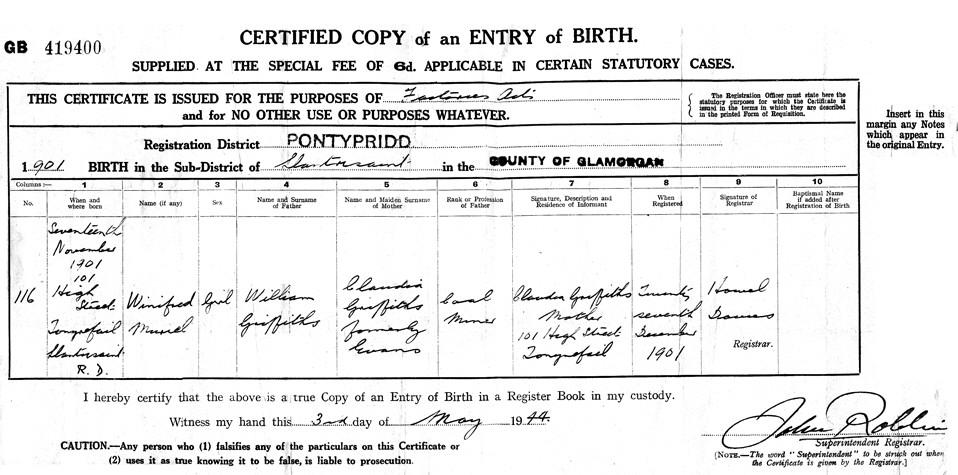 GB 419400
CERTIFIED COPY of an ENTRY of BIRTH.
SUPPLIED AT THE SPECIAL FEE OF 6d. APPLICABLE IN CERTAIN STATUTORY CASES.
THIS CERTIFICATE IS ISSUED FOR THE PURPOSES OF Factories Acts
and for NO OTHER USE OR PURPOSES WHATEVER.
The Registration Officer must state here the
statutory purposes for which the Certificate is
issued in the terms in which they are described
in the printed Form of Requisition.
Insert in this
margin any Notes
which appear in
the original Entry.
Registration District PONTYPRIDD
1901 BIRTH in the Sub-District of Llantrisaint in the COUNTY OF GLAMORGAN
Columns :— 1 2 3 4 5 6 7 8 9 10
No. When and where born Name (if any) Sex Name and Surname of Father Name and Maiden Surname of Mother Rank or Profession of Father Signature, Description and Residence of Informant When Registered Signature of Registrar Baptismal Name if added after Registration of Birth
116
Seventeenth
November
1901
101
High
Street
Tonyrefail
Llantrisaint
R. D.
Winifred
Muriel
Girl
William
Griffiths
Claudia
Griffiths
formerly
Evans
Coal
Miner
Claudia Griffiths
Mother
101 High Street
Tonyrefail
Twenty
seventh
December
1901
Howel
Davies
Registrar.
I hereby certify that the above is a true Copy of an Entry of Birth in a Register Book in my custody.
Witness my hand this 3rd day of May 1944.
CAUTION.—Any person who (1) falsifies any of the particulars on this Certificate or
(2) uses it as true knowing it to be false, is liable to prosecution.
John
Superintendent Registrar.
[NOTE.—The word "Superintendent" to be struck out when
the Certificate is given by the Registrar.]